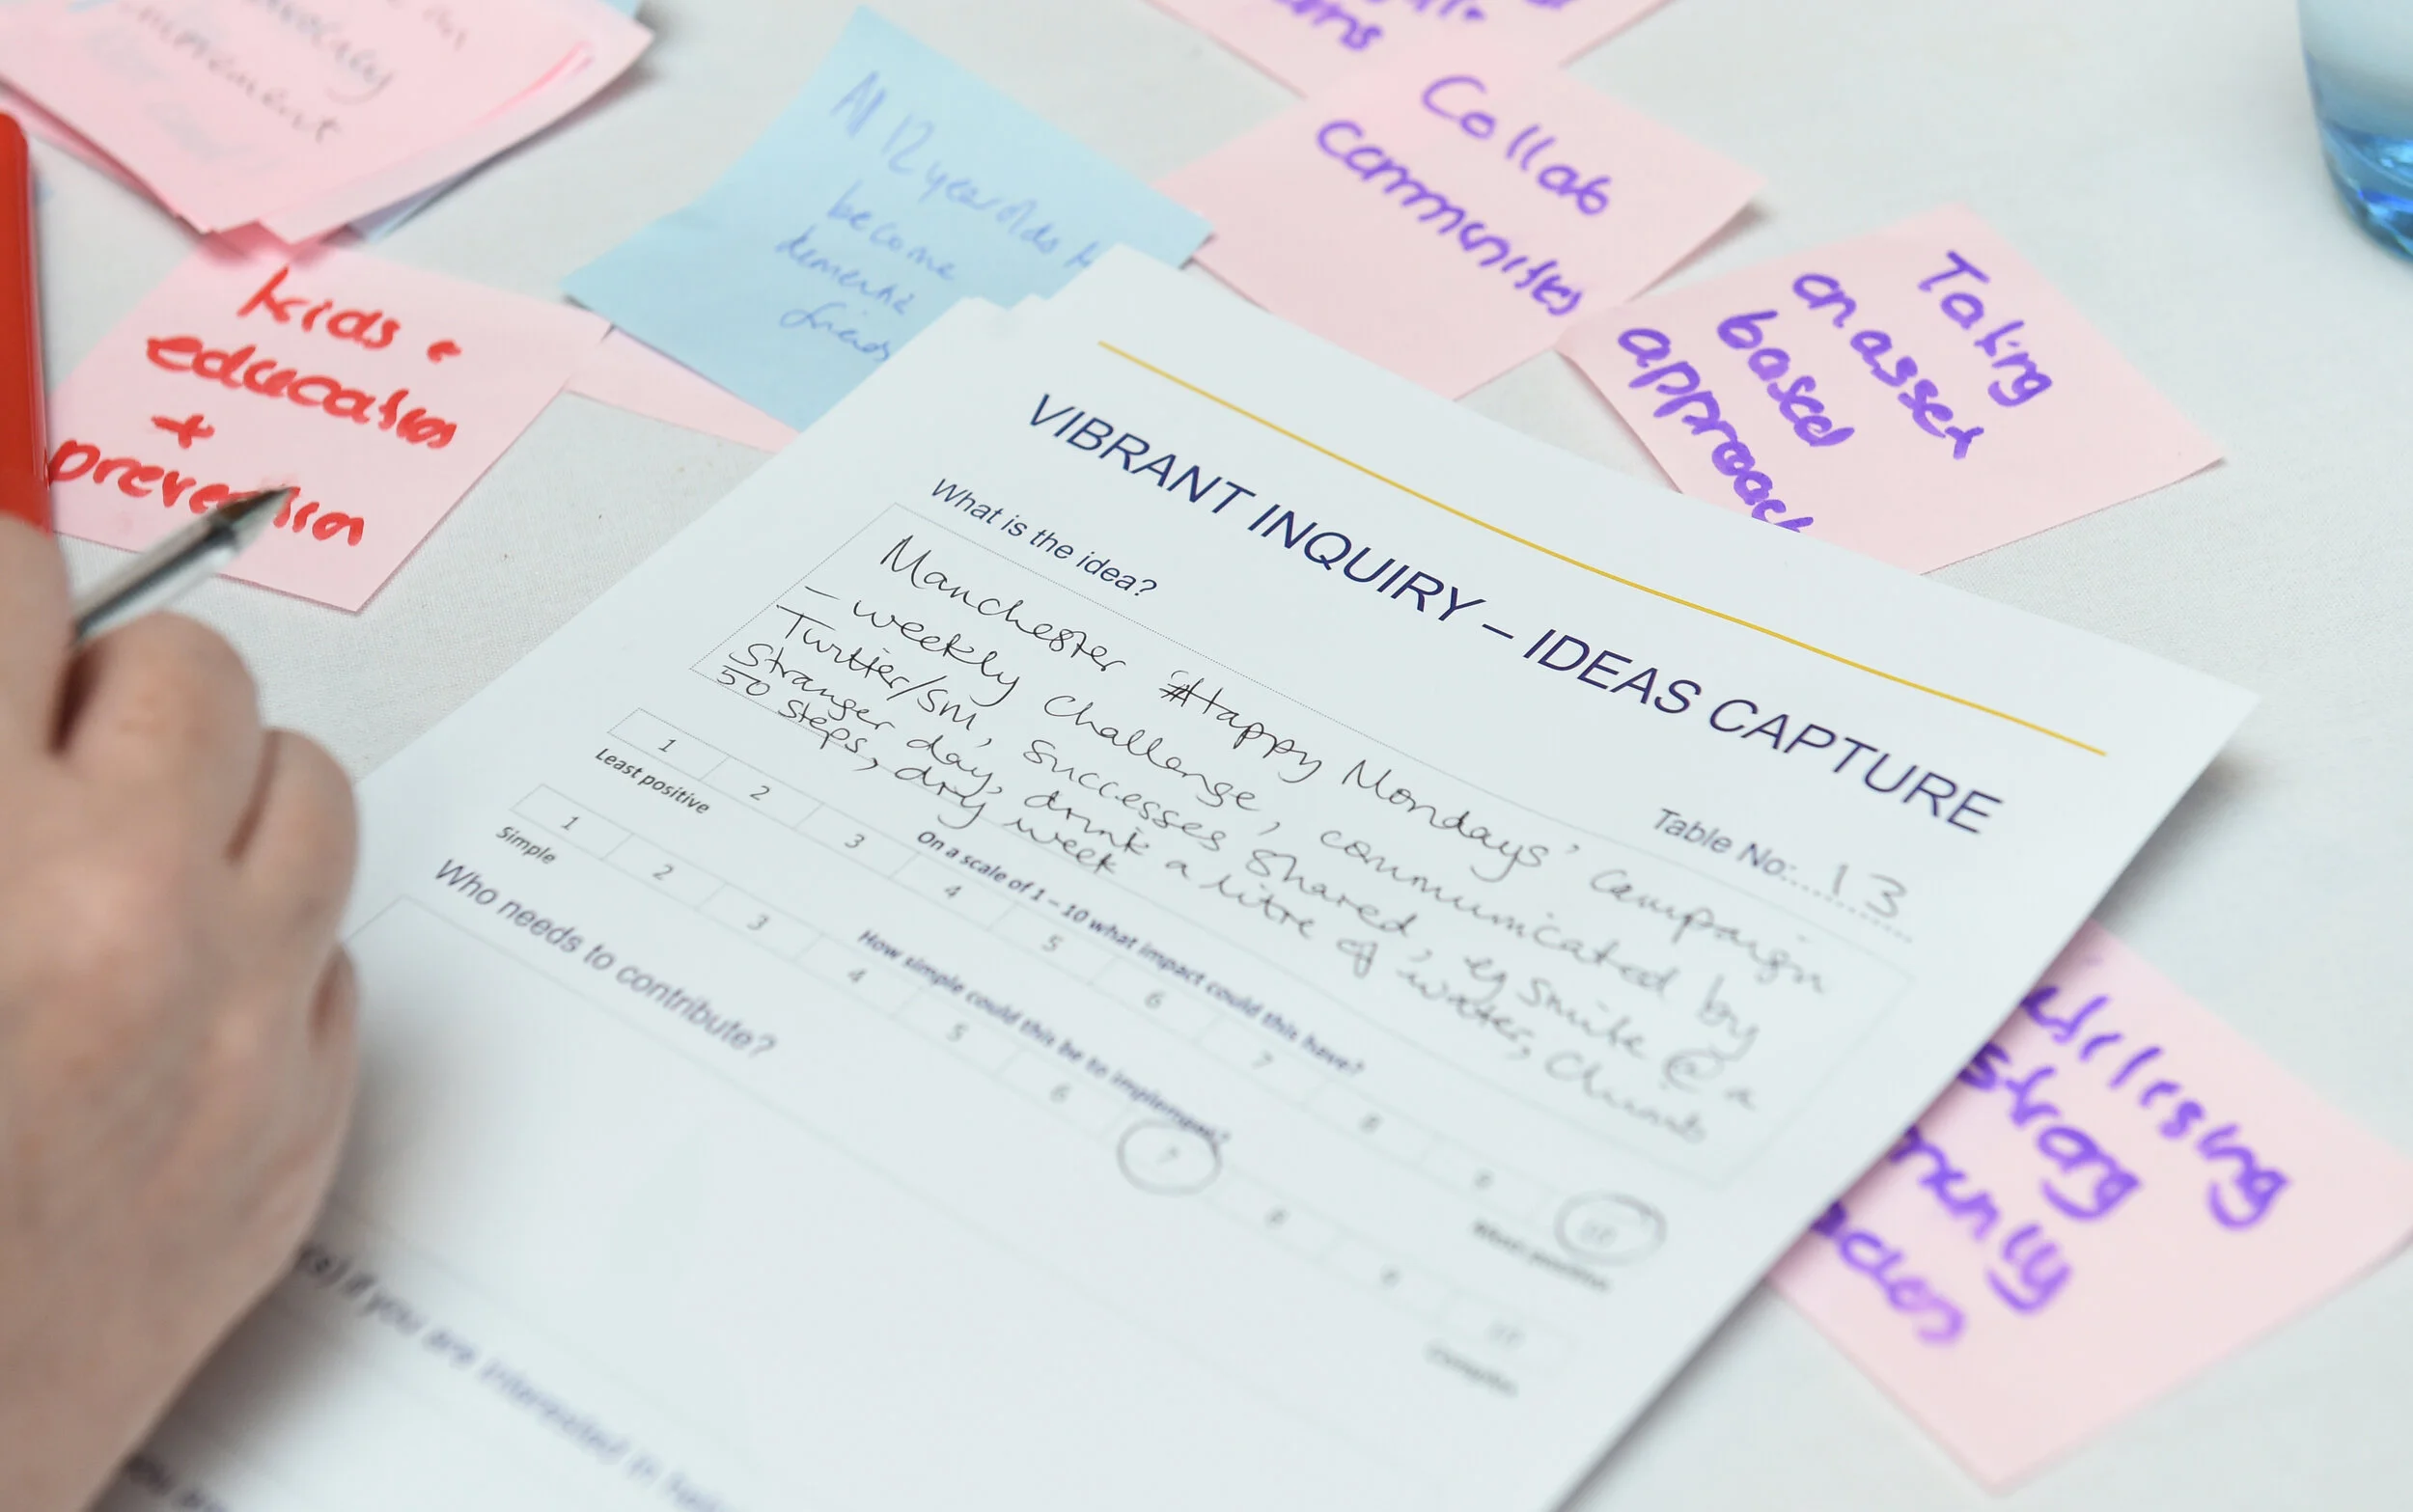 Collab
communities
Taking
an asset
based
approach
All 12 year olds
become
friends
kids +
education
+
prevention
VIBRANT INQUIRY – IDEAS CAPTURE
Table No: 13
What is the idea?
Manchester #Happy Mondays' campaign
– weekly challenge, communicated by
Twitter/SM, successes shared, eg smile @ a
Stranger day, drink a litre of water, climb
50 steps, dry week
On a scale of 1 – 10 what impact could this have?
1 2 3 4 5 6 7 8 9 10
Least positive Most positive
How simple could this be to implement?
1 2 3 4 5 6 7 8 9 10
Simple Complex
Who needs to contribute?
if you are interested in
strong